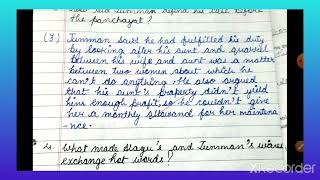 How did Jumman defend his case before
the panchayat?
(3) Jumman said he had fulfilled his duty
by looking after his aunt and quarrel
between his wife and aunt was a matter
between two women about which he
can't do anything. He also argued
that his aunt's property didn't yield
him enough profit, so he couldn't give
her a monthly allowand for her maintena
-nce.
4. What made Algu's and Jumman's wives
exchange hot words?
XRecorder